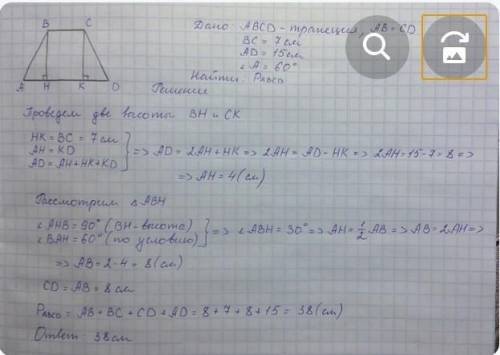 B C
A H K D
Дано: ABCD - трапеция, AB = CD
BC = 7 см
AD = 15 см
∠A = 60°
Найти: P_ABCD
Решение
Проведем две высоты BH и CK
HK = BC = 7 см
AH = KD
AD = AH + HK + KD } => AD = 2AH + HK => 2AH = AD - HK => 2AH = 15 - 7 = 8 =>
=> AH = 4 (см)
Рассмотрим △ABH
∠AHB = 90° (BH - высота)
∠BAH = 60° (по условию) } => ∠ABH = 30° => AH = 1/2 AB => AB = 2AH =>
=> AB = 2 · 4 = 8 (см)
CD = AB = 8 см
P_ABCD = AB + BC + CD + AD = 8 + 7 + 8 + 15 = 38 (см)
Ответ: 38 см